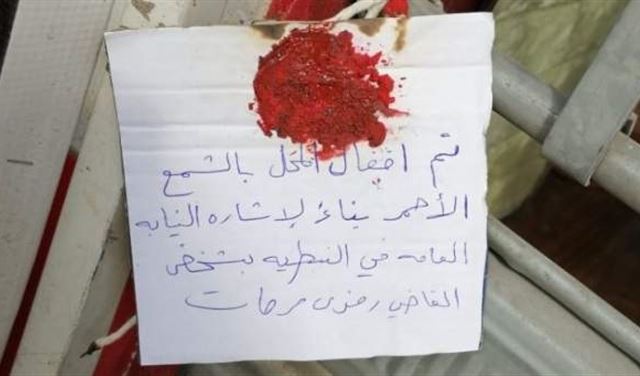 تم اقفال المحل بالشمع
الأحمر بناءً لإشاره النيابه
العامه في النبطيه بشخص
القاضي رمزى فرحات